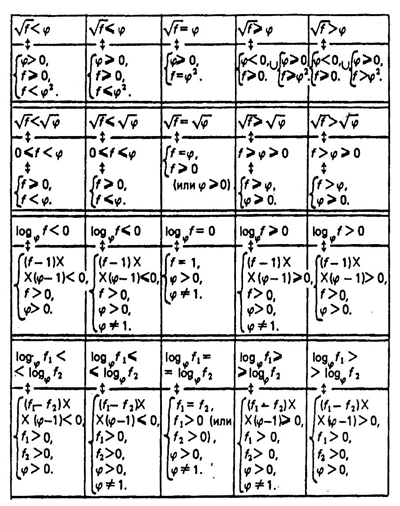 √f < φ
⇕
φ > 0,
f ⩾ 0,
f < φ².
√f ⩽ φ
⇕
φ ⩾ 0,
f ⩾ 0,
f ⩽ φ².
√f = φ
⇕
φ ⩾ 0,
f = φ².
√f ⩾ φ
⇕
{φ < 0, ∪ {φ ⩾ 0,
f ⩾ 0. f ⩾ φ².
√f > φ
⇕
{φ < 0, ∪ {φ ⩾ 0,
f ⩾ 0. f > φ².
√f < √φ
⇕
0 ⩽ f < φ
⇕
f ⩾ 0,
f < φ.
√f ⩽ √φ
⇕
0 ⩽ f ⩽ φ
⇕
f ⩾ 0,
f ⩽ φ.
√f = √φ
⇕
f = φ,
f ⩾ 0
(или φ ⩾ 0)
√f ⩾ √φ
⇕
f ⩾ φ ⩾ 0
⇕
f ⩾ φ,
φ ⩾ 0.
√f > √φ
⇕
f > φ ⩾ 0
⇕
f > φ,
φ ⩾ 0.
log_φ f < 0
⇕
(f − 1)×
×(φ − 1) < 0,
f > 0,
φ > 0.
log_φ f ⩽ 0
⇕
(f − 1)×
×(φ − 1) ⩽ 0,
f > 0,
φ > 0,
φ ≠ 1.
log_φ f = 0
⇕
f = 1,
φ > 0,
φ ≠ 1.
log_φ f ⩾ 0
⇕
(f − 1)×
×(φ − 1) ⩾ 0,
f > 0,
φ > 0,
φ ≠ 1.
log_φ f > 0
⇕
(f − 1)×
×(φ − 1) > 0,
f > 0,
φ > 0.
log_φ f₁ <
< log_φ f₂
⇕
(f₁ − f₂)×
×(φ − 1) < 0,
f₁ > 0,
f₂ > 0,
φ > 0.
log_φ f₁ ⩽
⩽ log_φ f₂
⇕
(f₁ − f₂)×
×(φ − 1) ⩽ 0,
f₁ > 0,
f₂ > 0,
φ > 0,
φ ≠ 1.
log_φ f₁ =
= log_φ f₂
⇕
f₁ = f₂,
f₁ > 0 (или
f₂ > 0),
φ > 0,
φ ≠ 1.
log_φ f₁ ⩾
⩾ log_φ f₂
⇕
(f₁ − f₂)×
×(φ − 1) ⩾ 0,
f₁ > 0,
f₂ > 0,
φ > 0,
φ ≠ 1.
log_φ f₁ >
> log_φ f₂
⇕
(f₁ − f₂)×
×(φ − 1) > 0,
f₁ > 0,
f₂ > 0,
φ > 0,